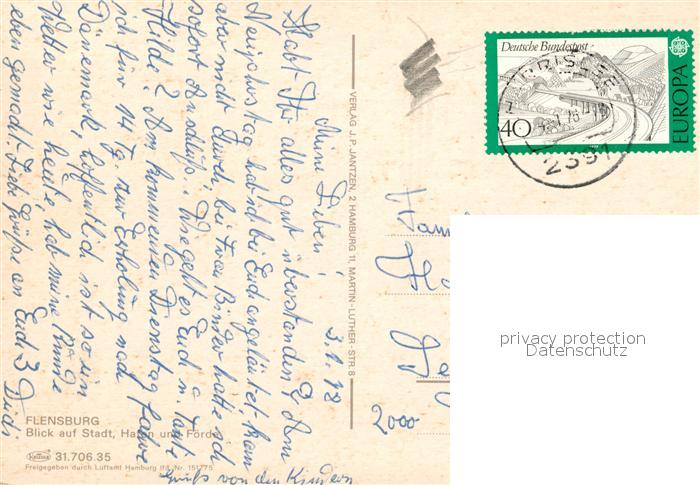 Meine Lieben! 3.1.78
Habt Ihr alles gut überstanden? Am
Neujahrstag hab ich bei Euch angeläutet, kam
aber nicht durch, bei Frau Binder hatte ich
sofort Anschluß. Wie geht es Euch u. Tante
Hilde? Am kommenden Dienstag fahre
ich für 14 Tg. zur Erholung nach
Dänemark, hoffentlich ist so ein
Wetter wie heute, hab meine Runde
eben gemacht. Liebe Grüße an Euch 3
Gruß von den Kindern
VERLAG J. P. JANTZEN, 2 HAMBURG 11, MARTIN-LUTHER-STR. 8
FLENSBURG
Blick auf Stadt, Hafen und Förde
31.706.35
Freigegeben durch Luftamt Hamburg lfd. Nr. 151775
Deutsche Bundespost
40
EUROPA
CEPT
2391
2000
privacy protection
Datenschutz